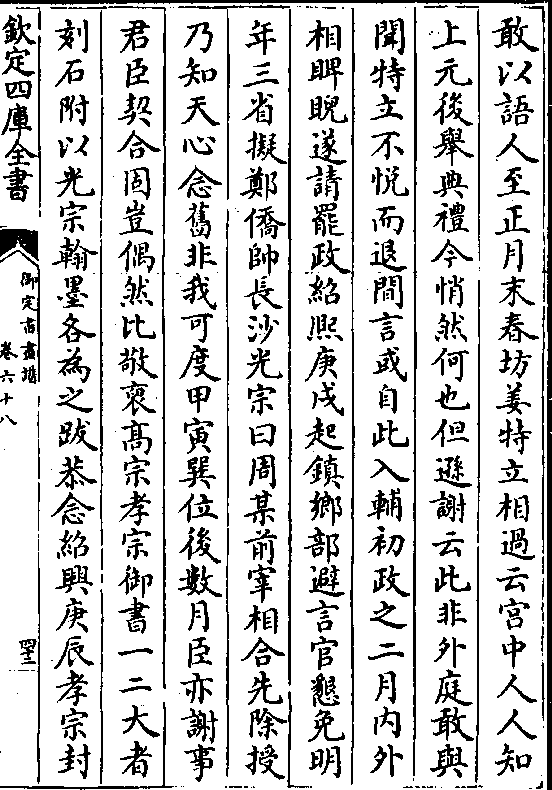 敢以語人至正月末春坊姜特立相過云宫中人人知
上元後舉典禮今悄然何也但遜謝云此非外庭敢與
聞特立不悅而退間言或自此入輔初政之二月内外
相睥睨遂請罷政紹熙庚戌起鎮鄉部避言官懇免明
年三省擬鄭僑帥長沙光宗曰周某前宰相合先除授
乃知天心念舊非我可度甲寅巽位後數月臣亦謝事
君臣契合固豈偶然比敬裒髙宗孝宗御書一二大者
刻石附以光宗翰墨各為之跋恭念紹興庚辰孝宗封
欽定四庫全書
御定書畫譜
卷六十八
四十二